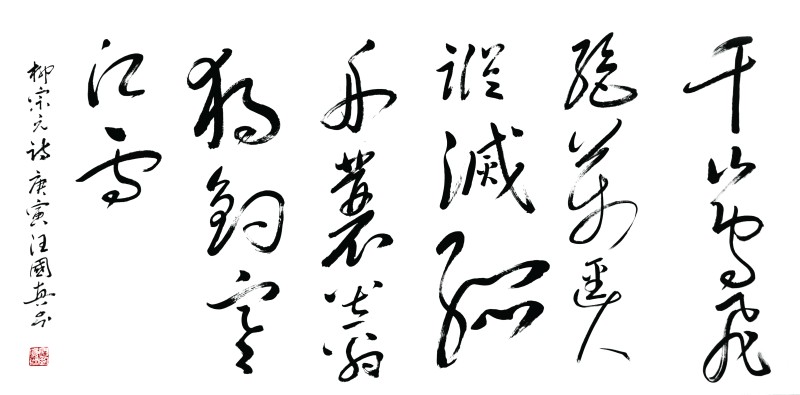 千山鳥飛
絕萬逕人
蹤滅孤
舟蓑笠翁
獨釣寒
江雪
柳宗元詩庚寅汪國真書